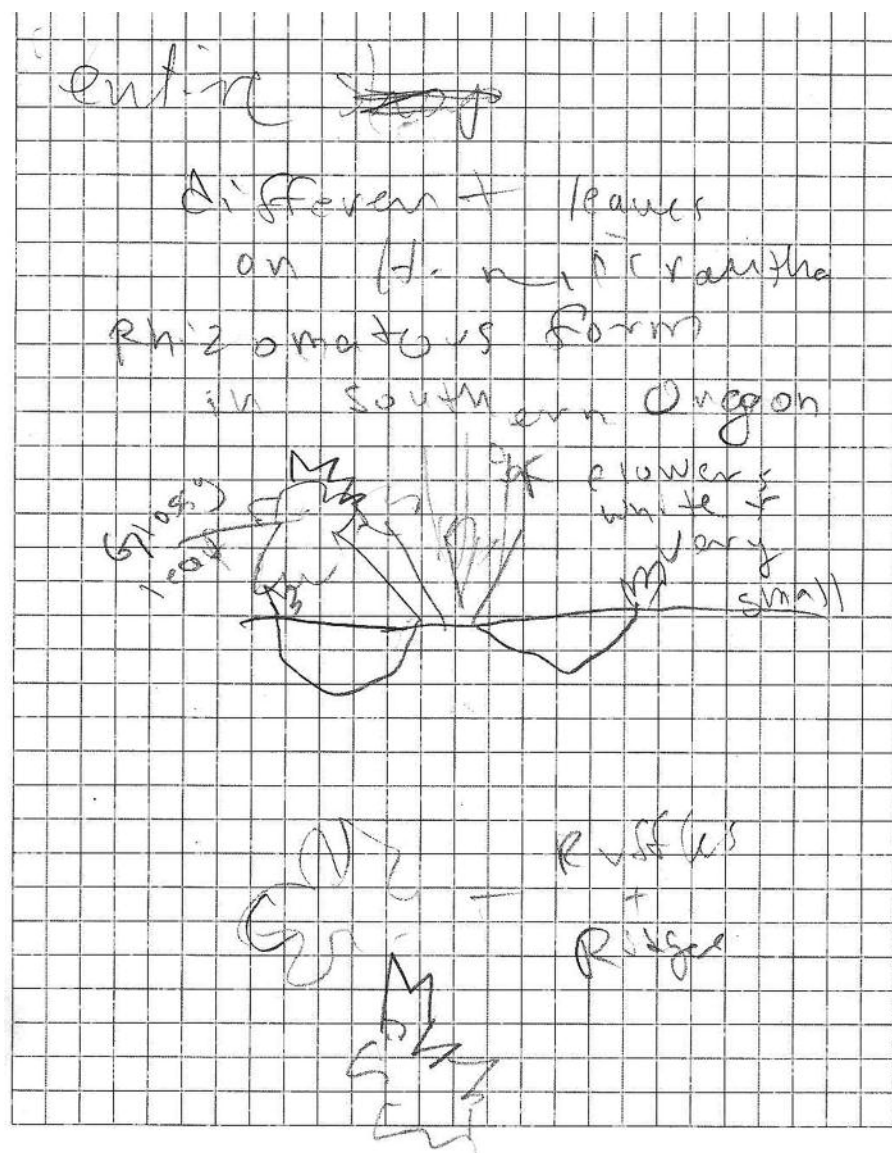 entire
different leaves
on H. micrantha
Rhizomatous form
in southern Oregon
Glossy
leaf
flowers
white +
very
small
Ruffles
+